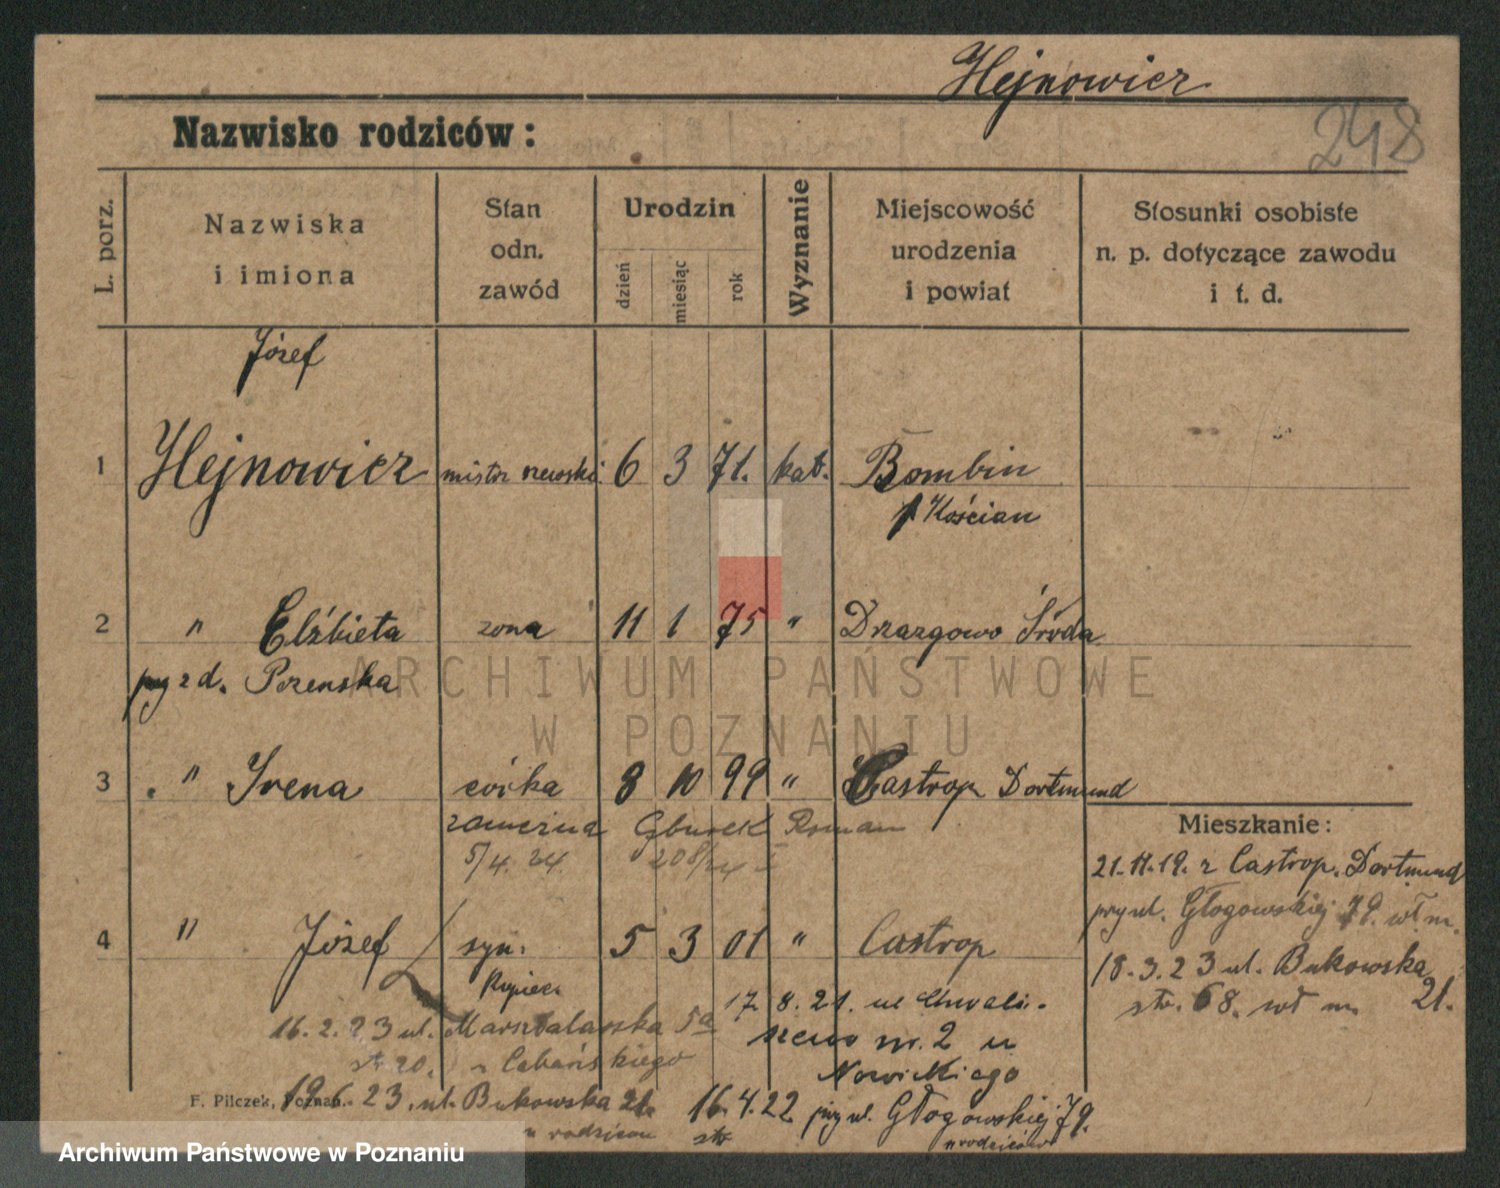 Hejnowicz
Nazwisko rodziców:
248
L. porz.
Nazwiska
i imiona
Stan
odn.
zawód
Urodzin
dzień
miesiąc
rok
Wyznanie
Miejscowość
urodzenia
i powiat
Stosunki osobiste
n. p. dotyczące zawodu
i t. d.
Józef
1 Hejnowicz mistrz szewski 6 3 71. kat. Bombin
p. Kościan
2 " Elżbieta żona 11 1 75 " Drzązgowo Środa
z d. Pozenska
3 " Irena córka 8 10 99 " Castrop Dortmund
zamężna Gburek Roman
5/4. 24.
Mieszkanie:
21.11.19. z Castrop. Dortmund
przy ul. Głogowskiej 79. wł m.
18.3.23 ul. Bukowska 21.
str. 68. wł m.
4 " Józef syn. 5 3 01 " Castrop
Kupiec
17 8. 21. ul Chwali-
szewo nr. 2 u
Nowickiego
16.2.23 ul. Marsztalarska 5a
str 20. u Cebańskiego
19.6.23. ul. Bukowska 21.
u rodziców
16.4.22 przy ul. Głogowskiej 79.
str u rodziców
F. Pilczek, Poznań.
ARCHIWUM PAŃSTWOWE
W POZNANIU
Archiwum Państwowe w Poznaniu